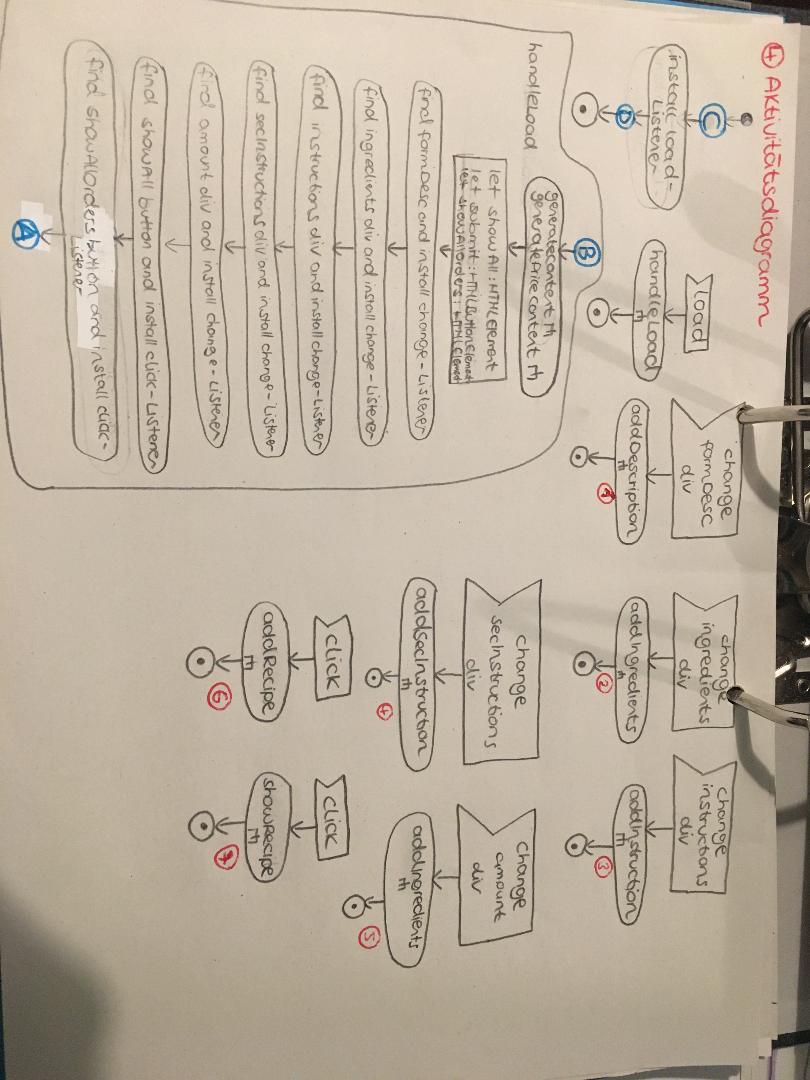 ④ Aktivitätsdiagramm
C
install load-
Listener
D
load
handleLoad
change
formDesc
div
addDescription
①
change
ingredients
div
addIngredients
②
change
instructions
div
addInstruction
③
handleLoad
B
generatecontent
generatePricecontent
let showAll:HTMLElement
let submit:HTMLButtonElement
let showAllorders: HTMLElement
find formDesc and install change-Listener
find ingredients div and install change-Listener
find instructions div and install change-Listener
find secInstructions div and install change-Listener
find amount div and install change-Listener
find showAll button and install click-Listener
find showAllOrders button and install click-
Listener
A
change
secInstructions
div
addSecInstruction
④
change
amount
div
addIngredients
⑤
click
addRecipe
⑥
click
showRecipe
⑦